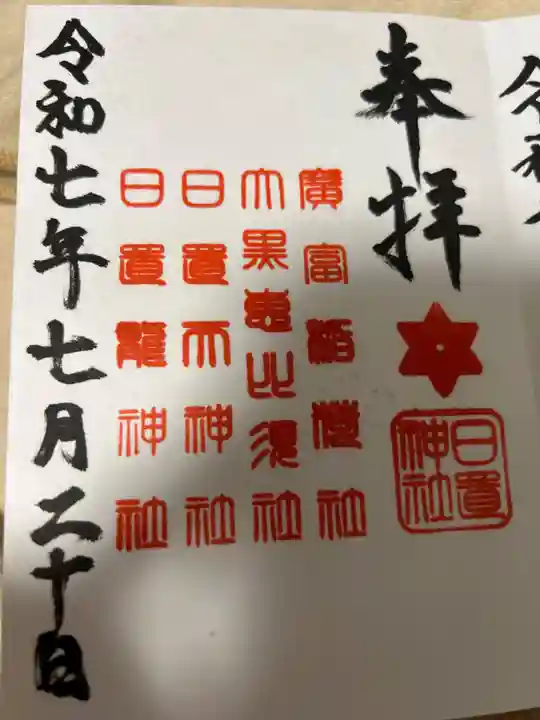 奉拝
日置
神社
廣富稲荷社
大黒恵比須社
日置天神社
日置龍神社
令和七年七月二十日
令和